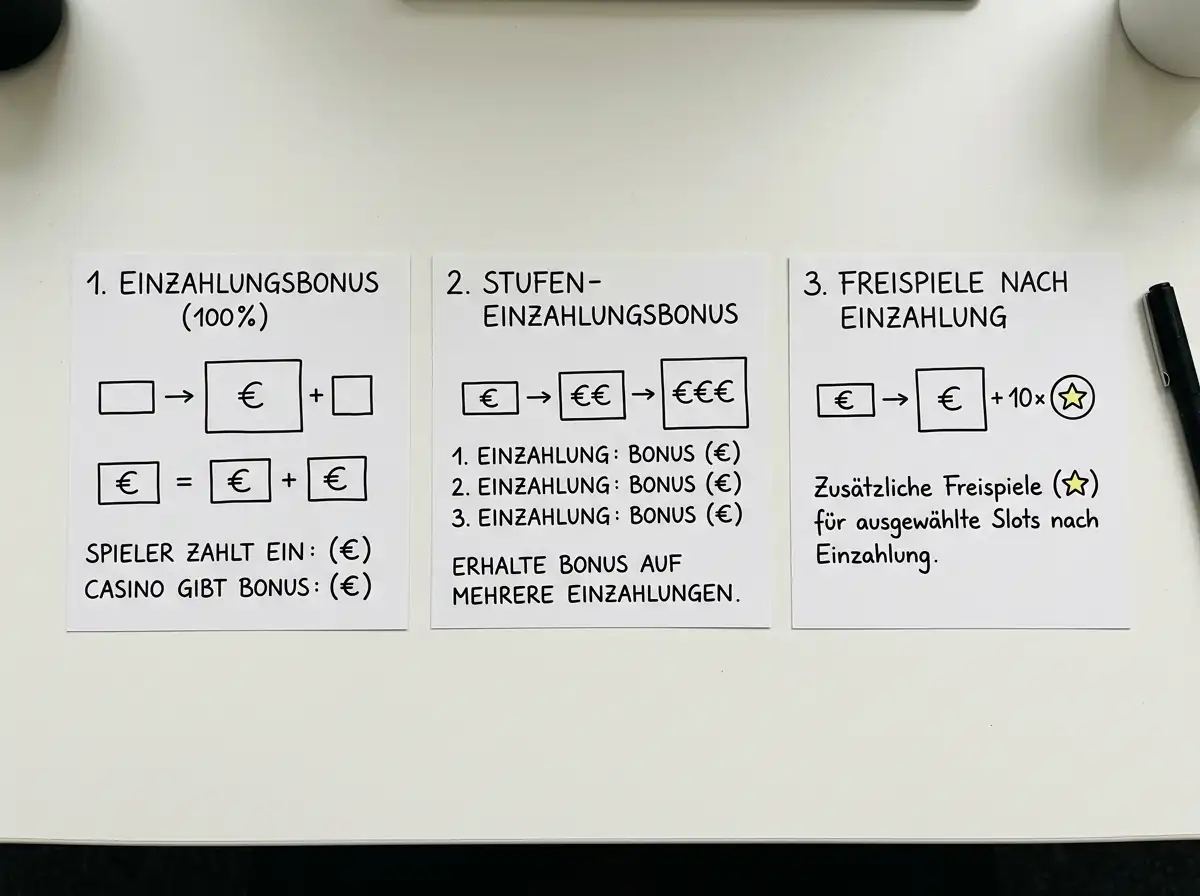 1. EINZAHLUNGSBONUS
(100%)
→ € +
€ = € + €
SPIELER ZAHLT EIN: (€)
CASINO GIBT BONUS: (€)
2. STUFEN-
EINZAHLUNGSBONUS
€ → €€ → €€€
1. EINZAHLUNG: BONUS (€)
2. EINZAHLUNG: BONUS (€)
3. EINZAHLUNG: BONUS (€)
ERHALTE BONUS AUF
MEHRERE EINZAHLUNGEN.
3. FREISPIELE NACH
EINZAHLUNG
€ → € + 10x ☆
Zusätzliche Freispiele (☆)
für ausgewählte Slots nach
Einzahlung.